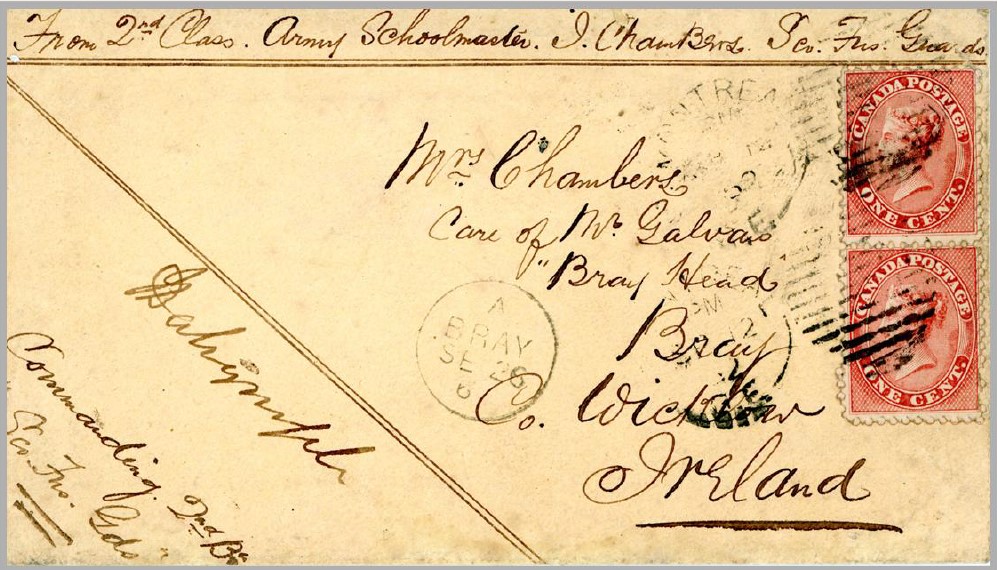 From 2nd Class. Army Schoolmaster. J. Chambers. Sco. Fus. Guards
CANADA POSTAGE
ONE CENT.
CANADA POSTAGE
ONE CENT.
MONTREAL
Mrs Chambers
Care of Mr. Galvas
"Bray Head
Bray
Co. Wicklow
Ireland
A
BRAY
SE 26
6
PM
12
Commanding. 2nd Bn
"Sco. Fus. Gds"